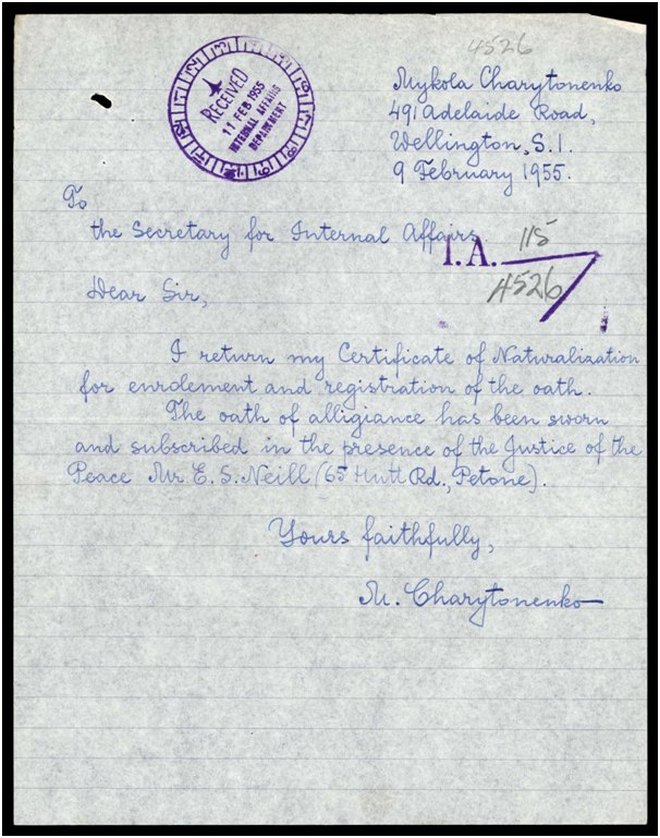 4526
RECEIVED
11 FEB 1955
INTERNAL AFFAIRS
DEPARTMENT
Mykola Charytonenko
491 Adelaide Road,
Wellington, S.1.
9 February 1955.
To
the Secretary for Internal Affairs
I.A. 115
4526
Dear Sir,
I return my Certificate of Naturalization
for enrolement and registration of the oath.
The oath of alligiance has been sworn
and subscribed in the presence of the Justice of the
Peace Mr. E. S. Neill (65 Hutt Rd., Petone).
Yours faithfully,
M. Charytonenko